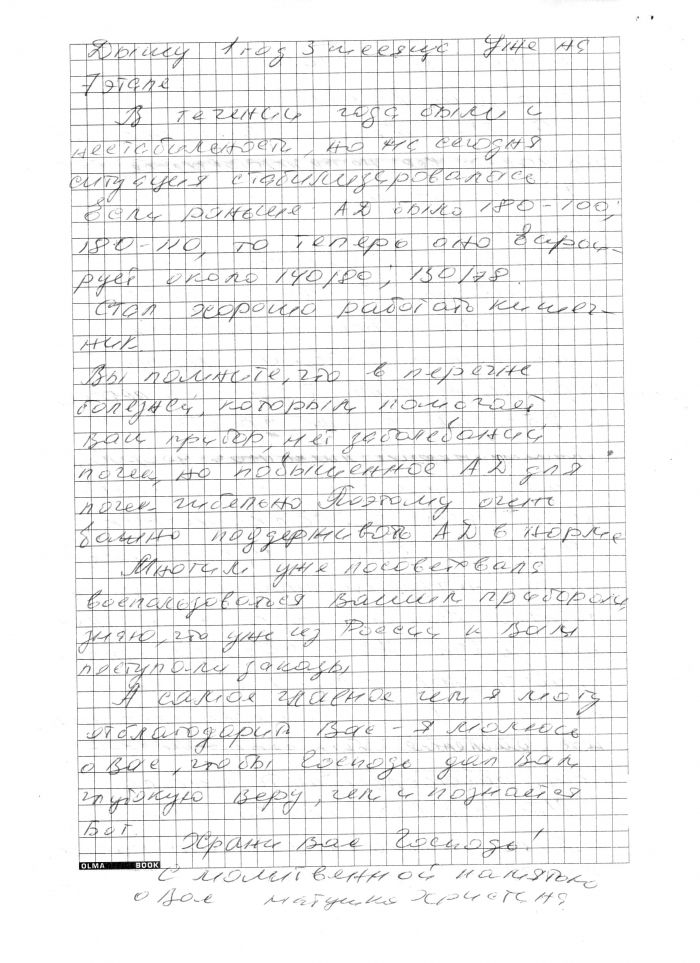 Дышу 1 год 3 месяца Уже на
7 этапе
В течении года были и
нестабильности, но на сегодня
ситуация стабилизировалась
Если раньше АД было 180-100;
180-110, то теперь оно варьи-
рует около 140/80; 130/78.
Стал хорошо работать кишеч-
ник.
Вы помните, что в перечне
болезней, которым помогает
Ваш прибор, нет заболеваний
почек, но повышенное АД для
почек гибельно Поэтому очень
важно поддерживать АД в норме
Многим уже посоветовала
воспользоваться Вашим прибором,
знаю, что уже из России к Вам
поступали заказы
А самое главное чем я могу
отблагодарить Вас - я молюсь
о Вас, чтобы Господь дал Вам
глубокую веру, чем и познается
Бог.
Храни Вас Господь!
OLMA BOOK
С молитвенной памятью
о Вас матушка Христина